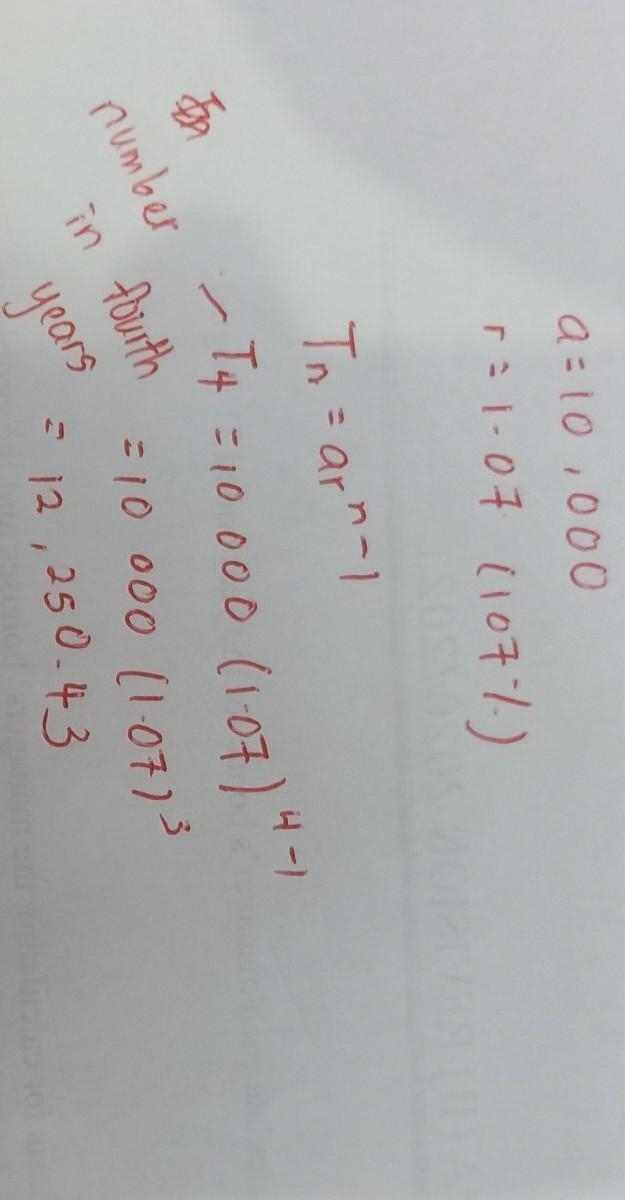 a = 10,000
r = 1.07 (107%)
Tn = ar^n-1
number in fourth years
T4 = 10 000 (1.07)^4-1
= 10 000 (1.07)^3
= 12,250.43